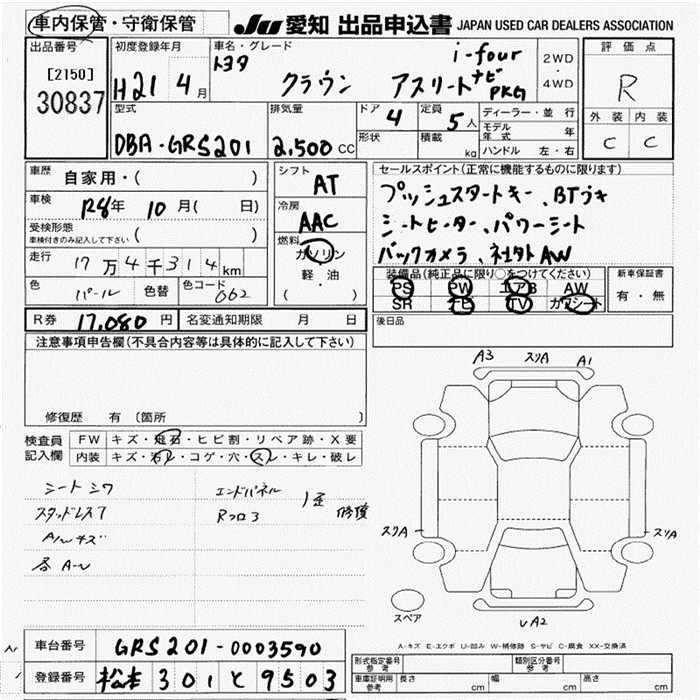 車内保管・守衛保管
JU 愛知 出品申込書 JAPAN USED CAR DEALERS ASSOCIATION
出品番号
[2150]
30837
初度登録年月
H21 4月
車名・グレード
トヨタ クラウン アスリート i-four
ナビPKG
2WD
・
4WD
評価点
R
外装 内装
C C
型式
DBA-GRS201
排気量
2,500 CC
ドア 4
形状
定員 5 人
積載 kg
ディーラー・並行
モデル年式 年
ハンドル 左・右
車歴 自家用・( )
車検 R8年 10月( 日)
受検形態
車検付きのみ記入して下さい ( )
走行 17万4千314km
色 パール 色替 色コード 062
シフト
AT
冷房
AAC
燃料
ガソリン
軽・油
( )
セールスポイント(正常に機能するものに限ります)
プッシュスタートキー、BTツキ
シートヒーター、パワーシート
バックカメラ、社外AW
装備品(純正品に限り○をつけてください)
PS PW エアB AW
SR ナビ TV カワシート
新車保証書
有・無
R券 17,080円 名変通知期限 月 日
後日品
注意事項申告欄(不具合内容等は具体的に記入して下さい)
修復歴 有 〔箇所 〕
検査員記入欄
FW キズ・飛石・ヒビ割・リペア跡・X要
内装 キズ・汚レ・コゲ・穴・スレ・キレ・破レ
シートシワ
スタッドレス7
A/Wキズ
各A〜
エンドパネル
Rフロア
修復
A3 スリA A1
スリA
スリA
スペア
A2
A-キズ E-エクボ U-凹み W-補修跡 S-サビ C-腐食 XX-交換済
車台番号 GRS201-0003590
登録番号 松本 301 と 9503
形式指定番号 参考
類別区分番号 参考
車庫証明用 参考 長さ cm 幅 cm 高さ cm